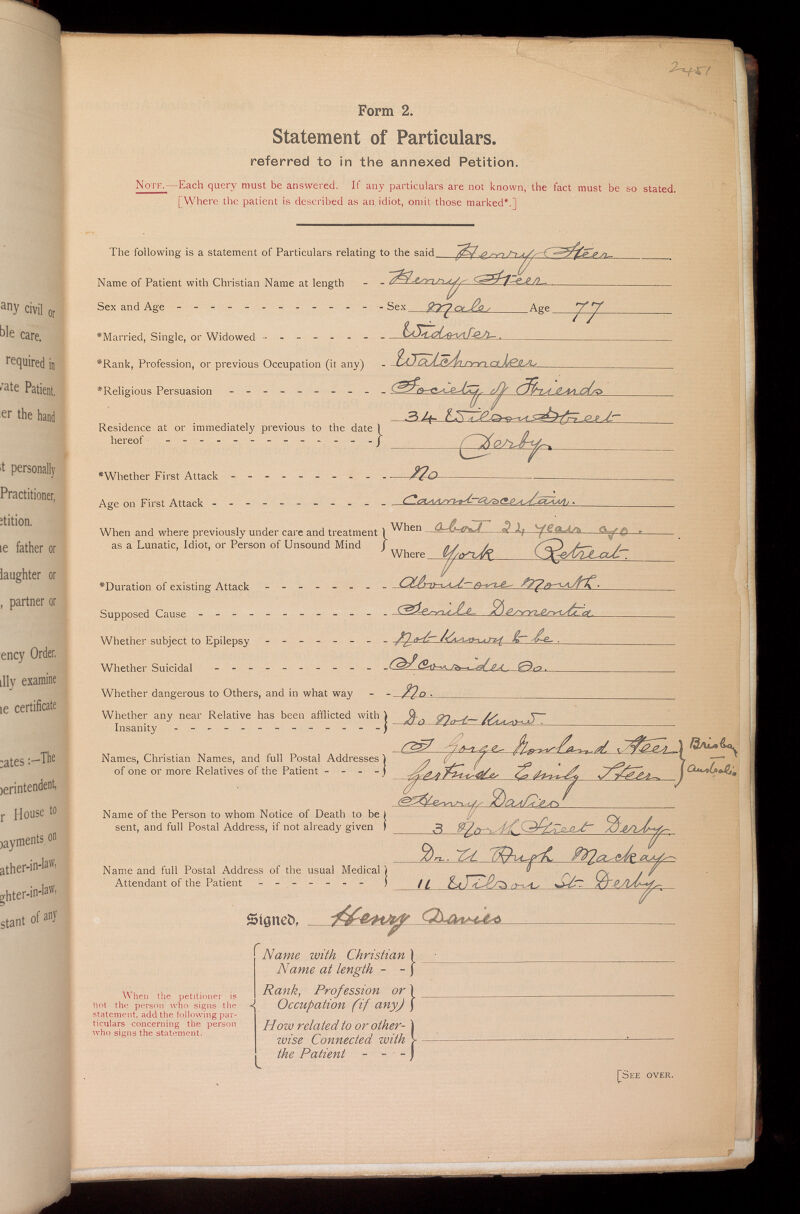 2451
any civil or
ble care.
required in
vate Patient,
er the hand
t personally
Practitioner,
etition.
e father or
laughter or
, partner or
ency Order,
lly examine
e certificate
cates :—The
perintendent,
r House to
payments on
ather-in-law,
ghter-in-law,
stant of any
Form 2.
Statement of Particulars.
referred to in the annexed Petition.
NOTE.—Each query must be answered. If any particulars are not known, the fact must be so stated.
[Where the patient is described as an idiot, omit those marked*.]
The following is a statement of Particulars relating to the said Henry Steer
Name of Patient with Christian Name at length - - Henry Steer
Sex and Age - - - - - - - - - - - - - Sex Male Age 77
*Married, Single, or Widowed - - - - - - - - Widower.
*Rank, Profession, or previous Occupation (if any) - Watchmaker
*Religious Persuasion - - - - - - - - - - Society of Friends
Residence at or immediately previous to the date } 34 Wilson Street
hereof - - - - - - - - - - - - - } Derby.
*Whether First Attack - - - - - - - - - - No
Age on First Attack - - - - - - - - - - - Cannot ascertain.
When and where previously under care and treatment } When about 24 years ago.
as a Lunatic, Idiot, or Person of Unsound Mind } Where York Retreat.
*Duration of existing Attack - - - - - - - - About one Month.
Supposed Cause - - - - - - - - - - - - Senile Dementia
Whether subject to Epilepsy - - - - - - - - Not Known to be.
Whether Suicidal - - - - - - - - - - - I Consider So.
Whether dangerous to Others, and in what way - - No.
Whether any near Relative has been afflicted with } Do Not Know.
Insanity - - - - - - - - - - - - - }
Names, Christian Names, and full Postal Addresses } Gorge Nowland Steer } Brisba
of one or more Relatives of the Patient - - - - } Gertrude Emily Steer } Australia
Henry Davies
Name of the Person to whom Notice of Death to be }
sent, and full Postal Address, if not already given } 3 North Street Derby.
Name and full Postal Address of the usual Medical } Dr. Hugh Mackay
Attendant of the Patient - - - - - - - } 11 Wilson St. Derby.
Signed, Henry Davies
When the petitioner is
not the person who signs the
statement, add the following par-
ticulars concerning the person
who signs the statement.
Name with Christian }
Name at length - - }
Rank, Profession or }
Occupation (if any) }
How related to or other- }
wise Connected with }
the Patient - - - }
[SEE OVER.